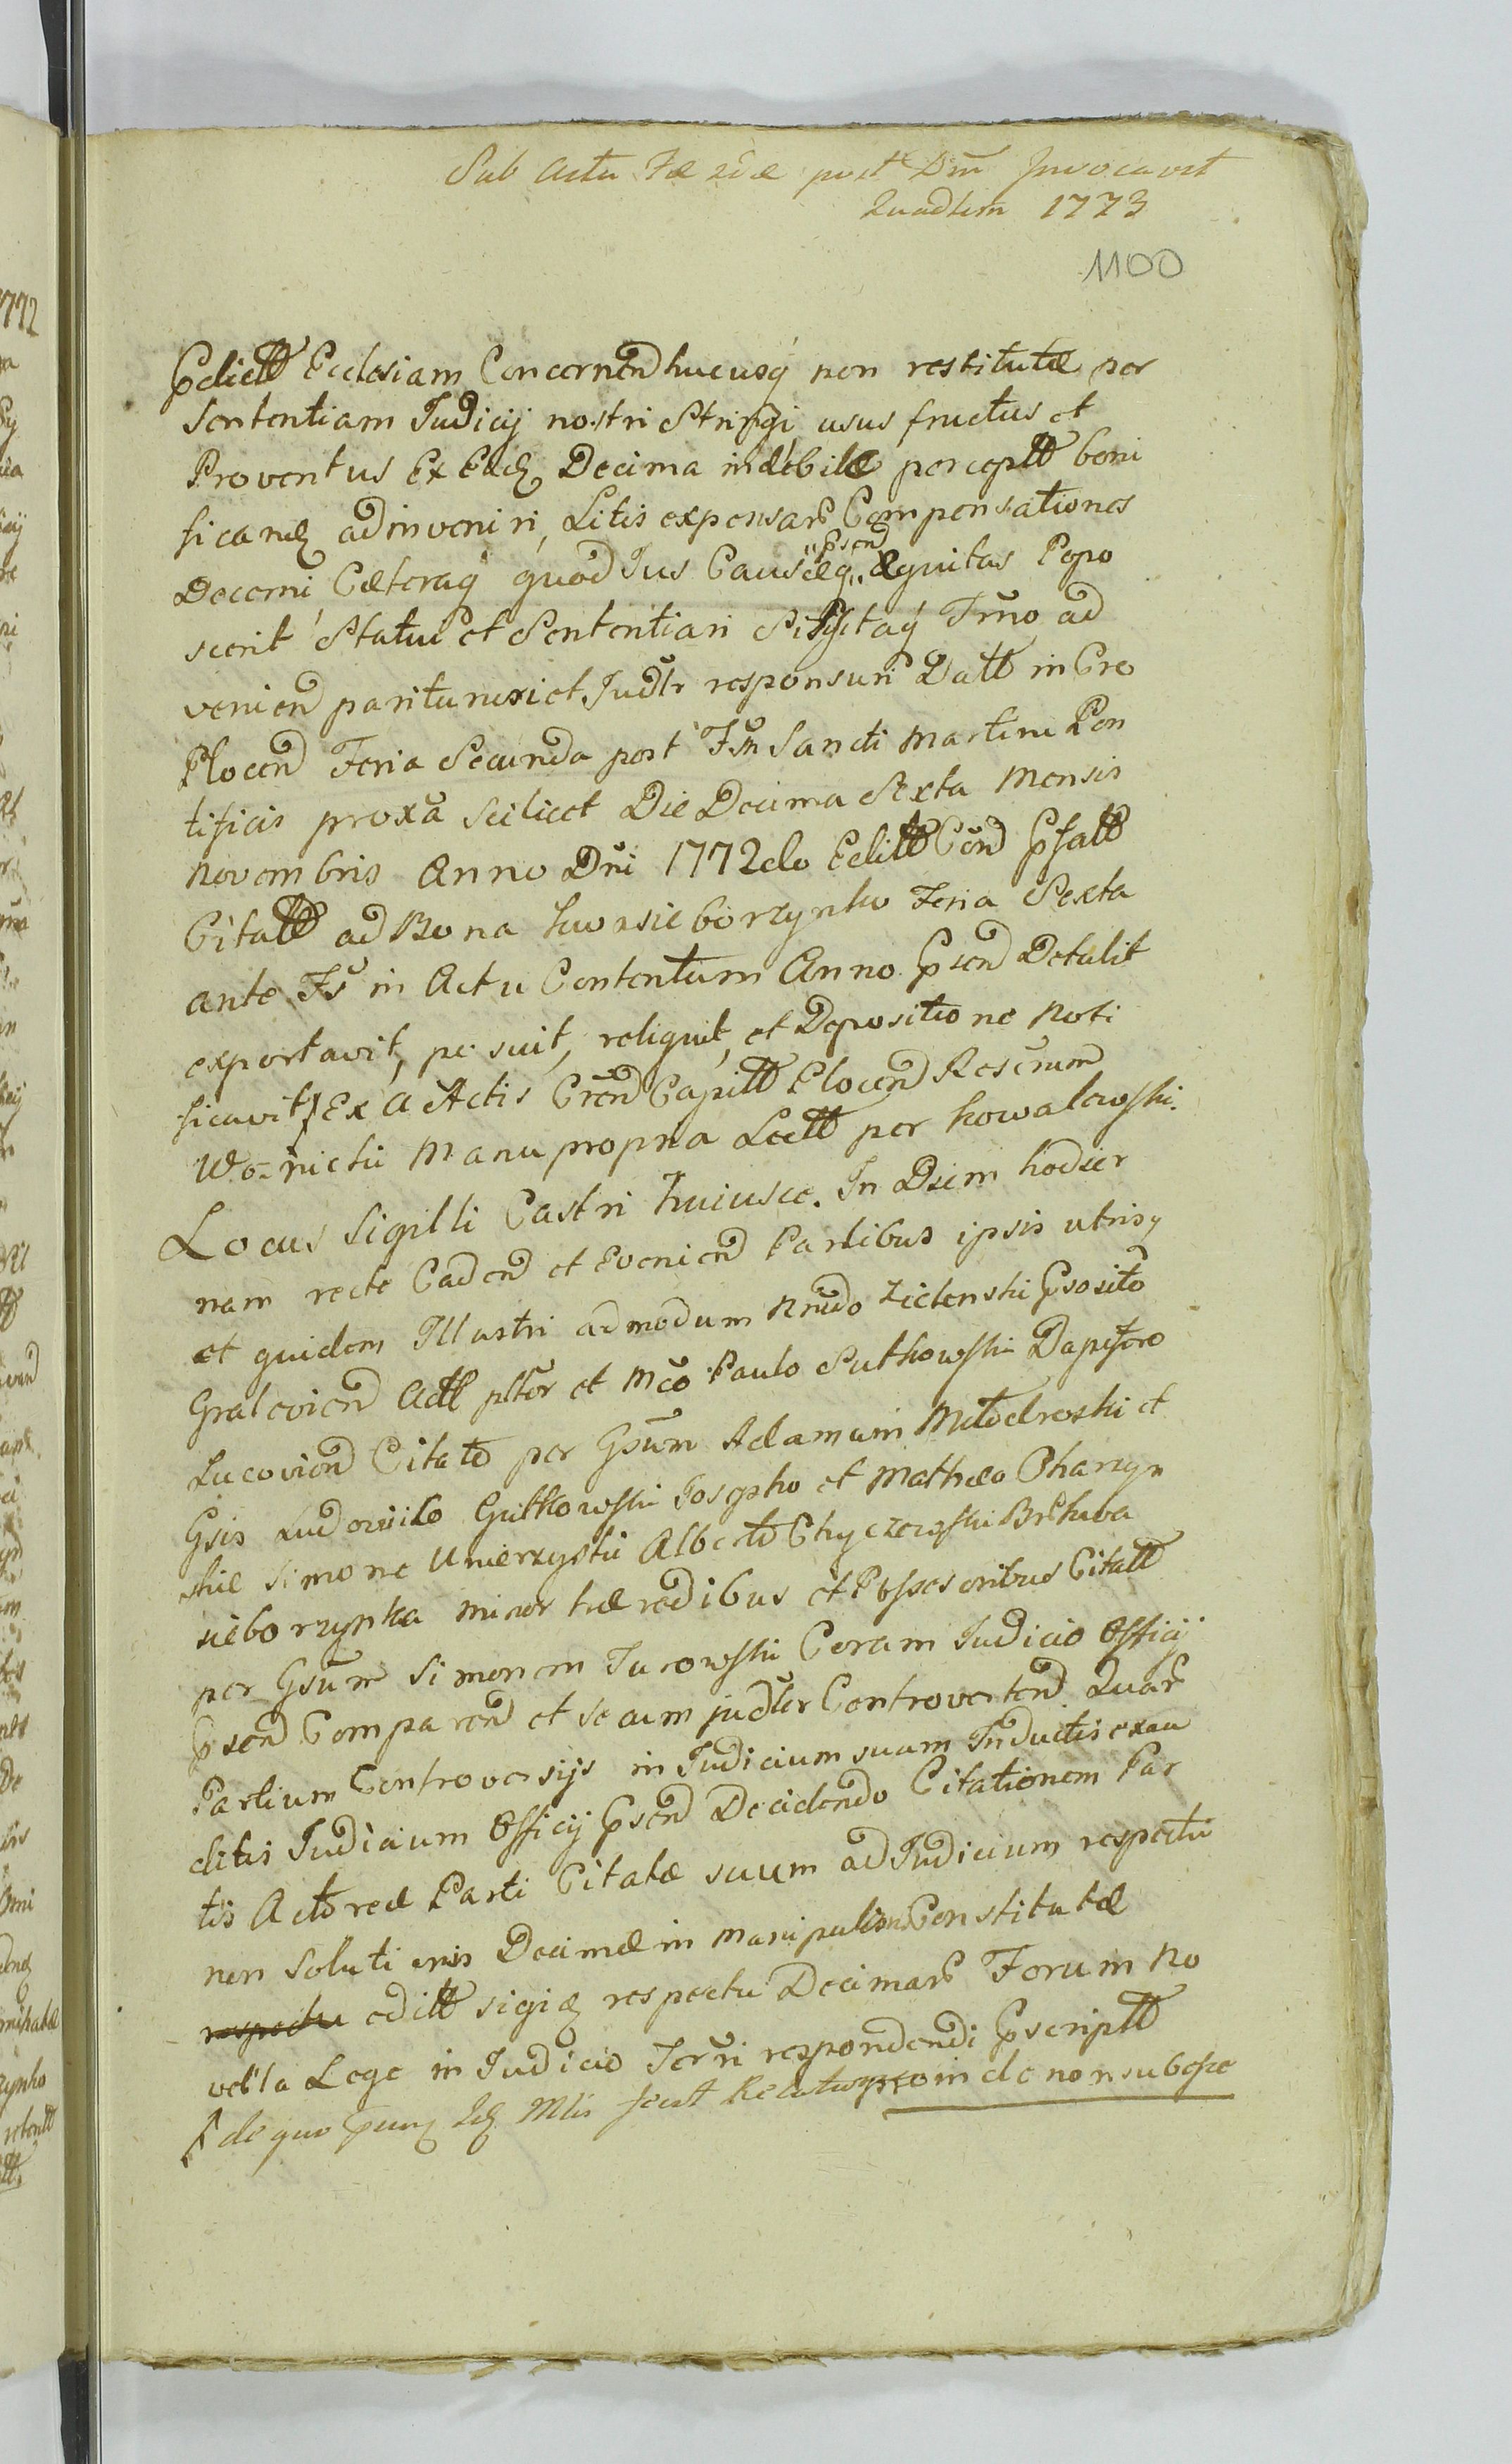 Sub Actu Fae 2dae post Dm̃ Invocavit
Quadḡm 1773
1100
Pdictt Ecclesiam Concernen̄ hucusq́ non restitutæ per
Sententiam Judicij nostri Stringi, usus fructus et
Proventus Ex Eadꝫ Decima indebite perceptt boni
ficandꝫ adinveniri, Litis expensar̃ Compensationes
Decerni Cæteraq́ quod Jus Causæq́ Æquitas Popo
"Psen̄
scerit Statui et Sententiari Sitꝫ Trn̄o ad
venien̄ pariturus et Judr̃ responsuri Datt in Cro
Plocen̄ Feria Secunda post Fm̄ Sancti Martini Pon
tificis proxã Scilicet Die Decima Sexta Mensis
Novembris Anno Dn̄i 1772do Editt Con̄ Psatt
Citatt ad Bona Kworsieborzynko Feria Sexta
ante Fs̄ in Actu Contentum Anno Psen̄ Detulit
exportavit, posuit, reliquit, et Depositione Noti
ficavit Ex Actis Cren̄ Capitt Plocen̄ Rescrum̄
Woznicki Manu propria Lectt per Kowalewski.
Locus Sigilli Castri huiusce. In Diem hodier
nam recte Caden̄ et Evenien̄ Partibus ipsis utrisq
et quidem Illustri admodum Rn̄do Zielenski Psosito
Gralevien̄ Actt pltor̃ et Mc̃o Paulo Sutkowski Dapifero
Lucovien̄ Citato per Gsum̃ Adamum Młodreski et
Gsis Ludoviko Gutkowski Josepho et Mathæo Charzyn
skie Simone Umierzyski Alberto Chyczewski
sieborzynka minor hæredibus et Possesoribus Citatt
per Gsum̃ Simonem Turowski Coram Judicio Officij
Psen̄ Comparen̄ et secum judr̃ Controverten̄ Quar̃
Partium Controversijs in Judicium suum Inductis exau
ditis Judicium Officij Psen̄ Decidendo Citationem Par
tis Actoreæ Parti Citatæ suum ad Judicium respectu
non Solutionis Decimæ in manipulis Constitutæ
respectu editt respectu Decimar̃ Forum No
vella Lege in Judicio Terr̃i respondendi Pscriptt
de quo Relatus inde non subesse